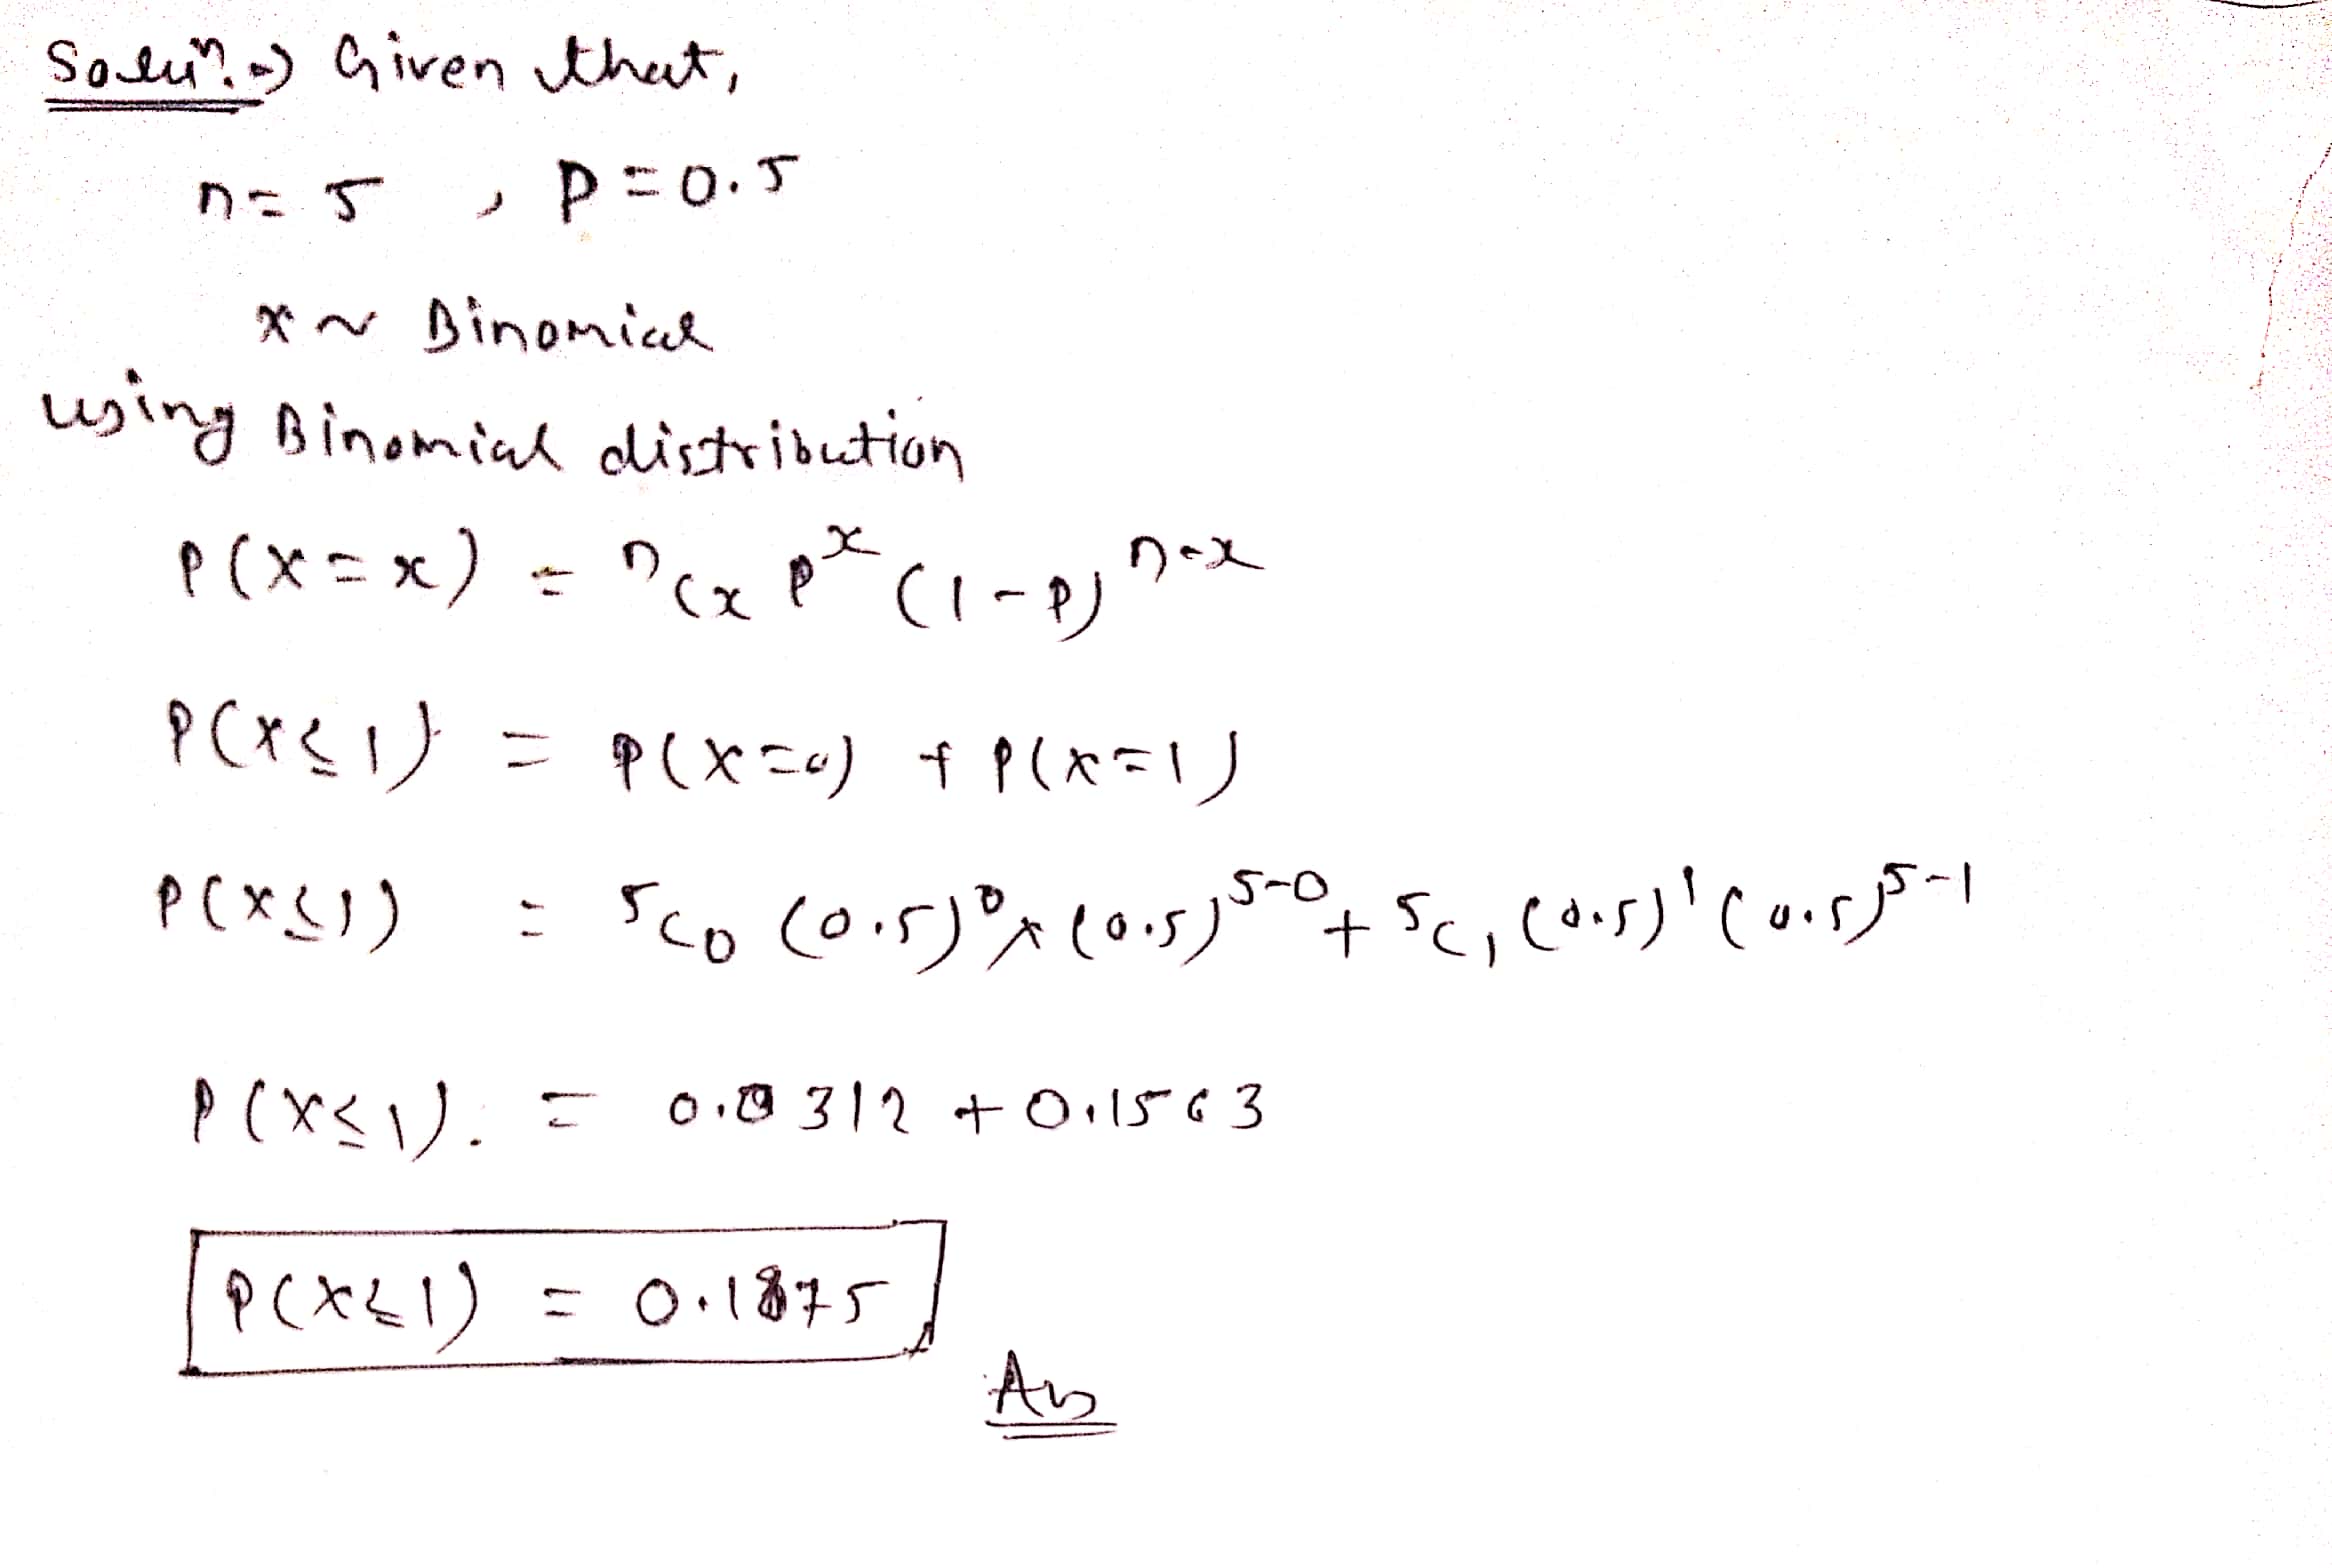 Soluⁿ. → Given that,
n = 5 , P = 0.5
x ~ Binomial
using Binomial distribution
P(X = x) = ⁿCx Pˣ (1-P)ⁿ⁻ˣ
P(X≤1) = P(X=0) + P(X=1)
P(X≤1) = ⁵C₀ (0.5)⁰ × (0.5)⁵⁻⁰ + ⁵C₁ (0.5)¹ (0.5)⁵⁻¹
P(X≤1). = 0.0312 + 0.1563
P(X≤1) = 0.1875
Ans